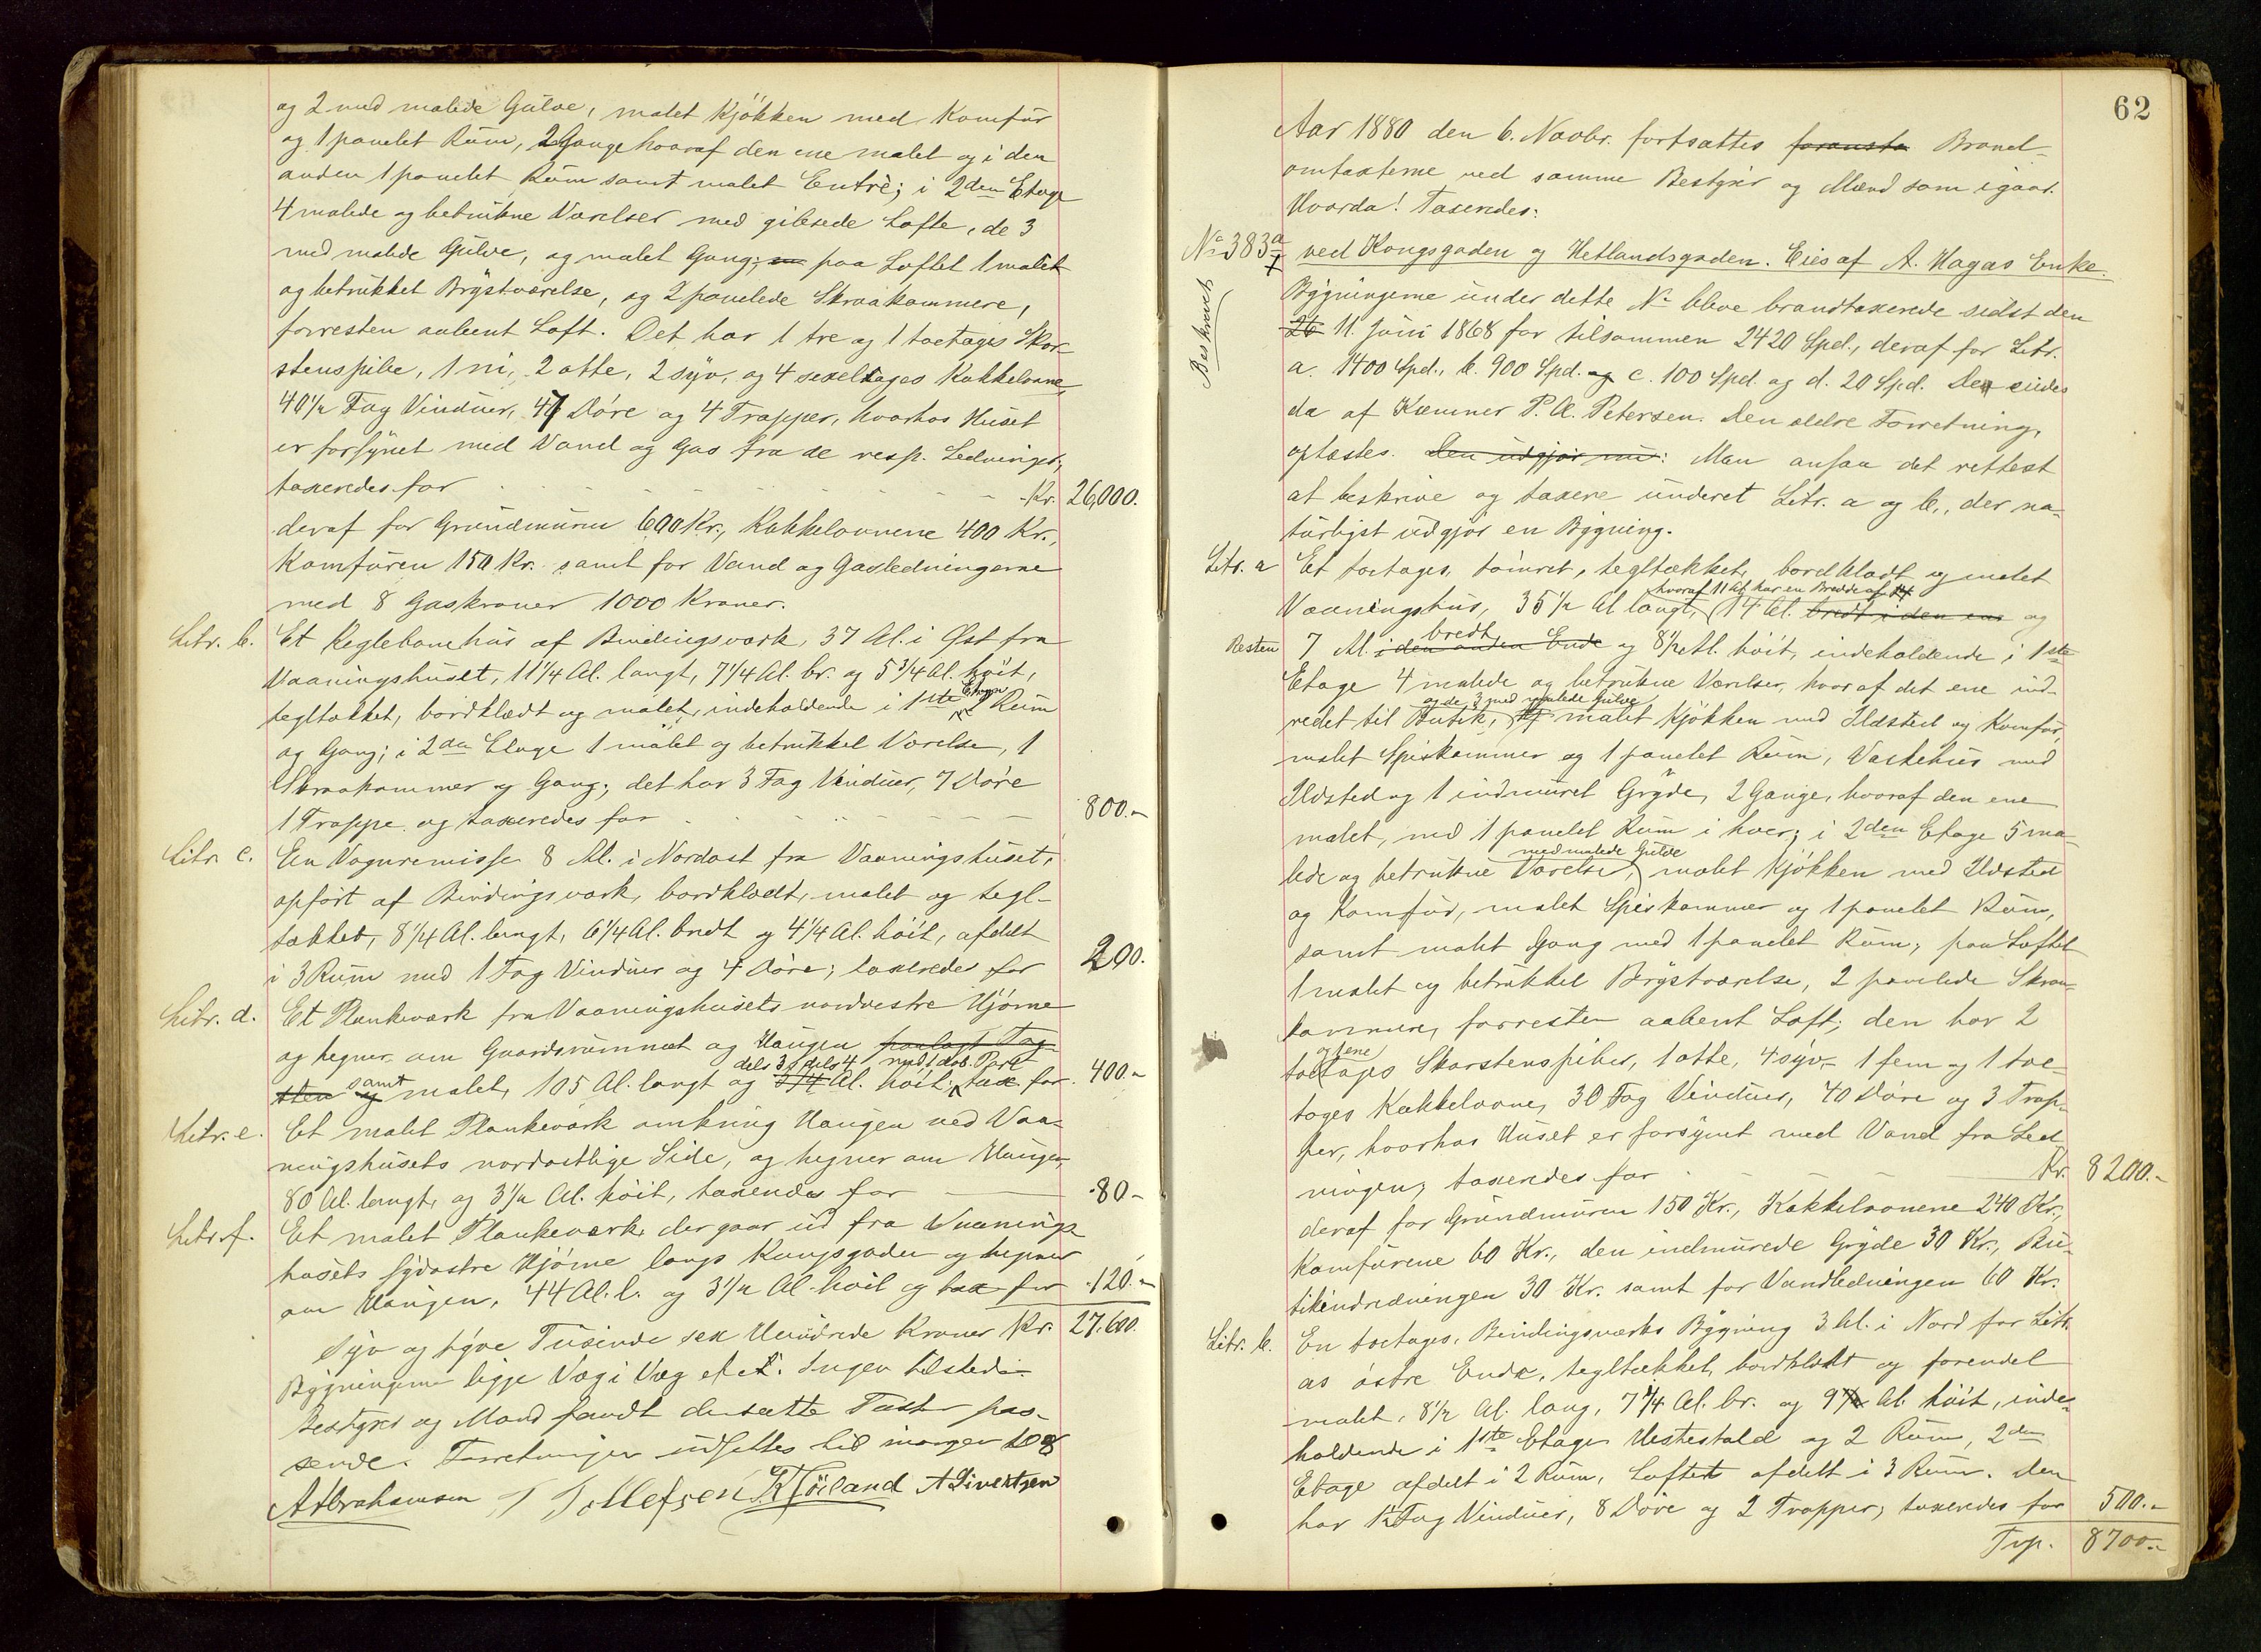 og 2 med malede Gulve, malet Kjøkken med Komfur
og 1 panelet Rum, 2 Gange hvoraf den ene malet og i den
anden 1 panelet Rum samt malet Entrè; i 2den Etage
4 malede og betrukne Værelser med gibsede Lofte, de 3
med malede Gulve, og malet Gang; paa Loftet 1 malet
og betrukket Brystværelse, og 2 panelede Skraakammere,
forresten aabent Loft. Det har 1 tre og 1 toetages Skor-
stenspibe, 1 ni, 2 otte, 2 syv, og 4 sexetages Kakkelovne,
40½ Fag Vinduer, 47 Døre og 4 Trapper, hvorhos Huset
er forsynet med Vand og Gas fra de resp. Ledninger,
taxeredes for - - - Kr. 26,000.
deraf for Grundmuren 600 Kr., Kakkelovnene 400 Kr.,
Komfuren 150 Kr. samt for Vand og Gasledningerne
med 8 Gaskraner 1000 Kroner.
Litr. b. Et Keglebanehus af Bindingsværk, 37 Al. i Øst fra
Vaaningshuset, 11¼ Al. langt, 7¼ Al. br. og 5¾ Al. høit,
tegltækket, bordklædt og malet, indeholdende i 1ste Etage 2 Rum
og Gang; i 2den Etage 1 malet og betrukket Værelse, 1
Skraakammer og Gang; det har 3 Fag Vinduer, 7 Døre
1 Trappe og taxeredes for - - - 800.-
Litr. c. En Vognremisse 8 Al. i Nordost fra Vaaningshuset,
opført af Bindingsværk, bordklædt, malet og tegl-
tækket, 8¼ Al. langt, 6¼ Al. bredt og 4¼ Al. høit, afdelt
i 3 Rum med 1 Fag Vinduer og 4 Døre; taxeredes for 200.
Litr. d. Et Plankeværk fra Vaaningshusets nordvestre Hjørne
og hegner om Gaardsrummet og Haugen paalagt Tag-
sten og samt malet, 105 Al. langt og 3/4 dels 3, dels 4 Al. høit; med 1 dob. Port tax. for 400.-
Litr. e. Et malet Plankeværk omkring Haugen ved Vaa-
ningshusets nordostlige Side, og hegner om Haugen,
80 Al. langt, og 3½ Al. høit, taxeredes for 80-
Litr. f. Et malet Plankeværk, der gaar ud fra Vaanings
husets sydostre Hjørne langs Kongsgaden og hegner
om Haugen, 44 Al. l. og 3½ Al. høit og tax for 120.-
Syv og tyve Tusinde sex Hundrede Kroner Kr. 27,600.
Bygningerne ligge Væg i Væg etc. Ingen tilstede.
Bestyrer og Mænd fandt de satte Taxter pas-
sende. Forretningen udsattes til imorgen
A Abrahamsen T Tollefsen K Höiland A Sivertsen
62
Aar 1880 den 6. Novbr. fortsattes foranstå Brand-
omtaxterne ved samme Bestyrer og Mænd som igaar.
Hvorda! Taxeredes:
No 383a ved Kongsgaden og Hetlandsgaden. Eies af A. Hagas Enke.
Beskrevet
Bygningerne under dette No bleve brandtaxerede sidst den
26 11. Juni 1868 for tilsammen 2420 Spd., deraf for Litr.
a. 1400 Spd., b. 900 Spd. og c. 100 Spd. og d. 20 Spd. Den eiedes
da af Kæmner P. A. Petersen. Den ældre Forretning,
oplæstes. Den udgjør nu: Man ansaa det rettest
at beskrive og taxere underet Litr. a og b., der na-
turligst udgjør en Bygning.
Litr. a Et toetages, tømret, tegltækket, bordklædt og malet
Vaaningshus, 35½ Al langt, hvoraf 11 Al har en Bredde af 14 Al. bredt i den ene og
Resten 7 Al. i den anden Ende bredt og 8½ Al. høit, indeholdende i 1ste
Etage 4 malede og betrukne Værelser, hvoraf det ene ind-
redet til Butik, og de 3 med malede Gulve malet Kjøkken med Ildsted og Komfur,
malet Spiskammer og 1 panelet Rum, Vaskehus med
Ildsted og 1 indmuret Gryde, 2 Gange, hvoraf den ene
malet, med 1 panelet Rum i hver; i 2den Etage 5 ma-
lede og betrukne Værelser, med malede Gulve malet Kjøkken med Ildsted
og Komfur, malet Spiskammer og 1 panelet Rum,
samt malet Gang med 1 panelet Rum; paa Loftet
1 malet og betrukket Brystværelse, 2 panelede Skraa-
kammere, forresten aabent Loft; den har 2
toetages Skorstenspiber, 1 otte, 4 syv, 1 fem og 1 toe-
tages Kakkelovne, 30 Fag Vinduer, 40 Døre og 3 Trap-
per, hvorhos Huset er forsynet med Vand fra Led-
ningen, taxeredes for - Kr. 8200.-
deraf for Grundmuren 150 Kr., Kakkelovnene 240 Kr.,
Komfurene 60 Kr., den indmurede Gryde 30 Kr., Bu-
tikindredningen 30 Kr. samt for Vandledningen 60 Kr.
Litr. b. En toetages, Bindingsværks Bygning 3 Al. i Nord for Litr.
as østre Ende, tegltækket, bordklædt og forendel
malet, 8½ Al. lang, 7¼ Al. br. og 9 Al. høit, inde-
holdende i 1ste Etage Hestestald og 2 Rum, 2den
Etage afdelt i 2 Rum, Loftet afdelt i 3 Rum. Den
har 1½ Fag Vinduer, 8 Døre og 2 Trapper, taxeredes for 500.-
Trp. 8700.-